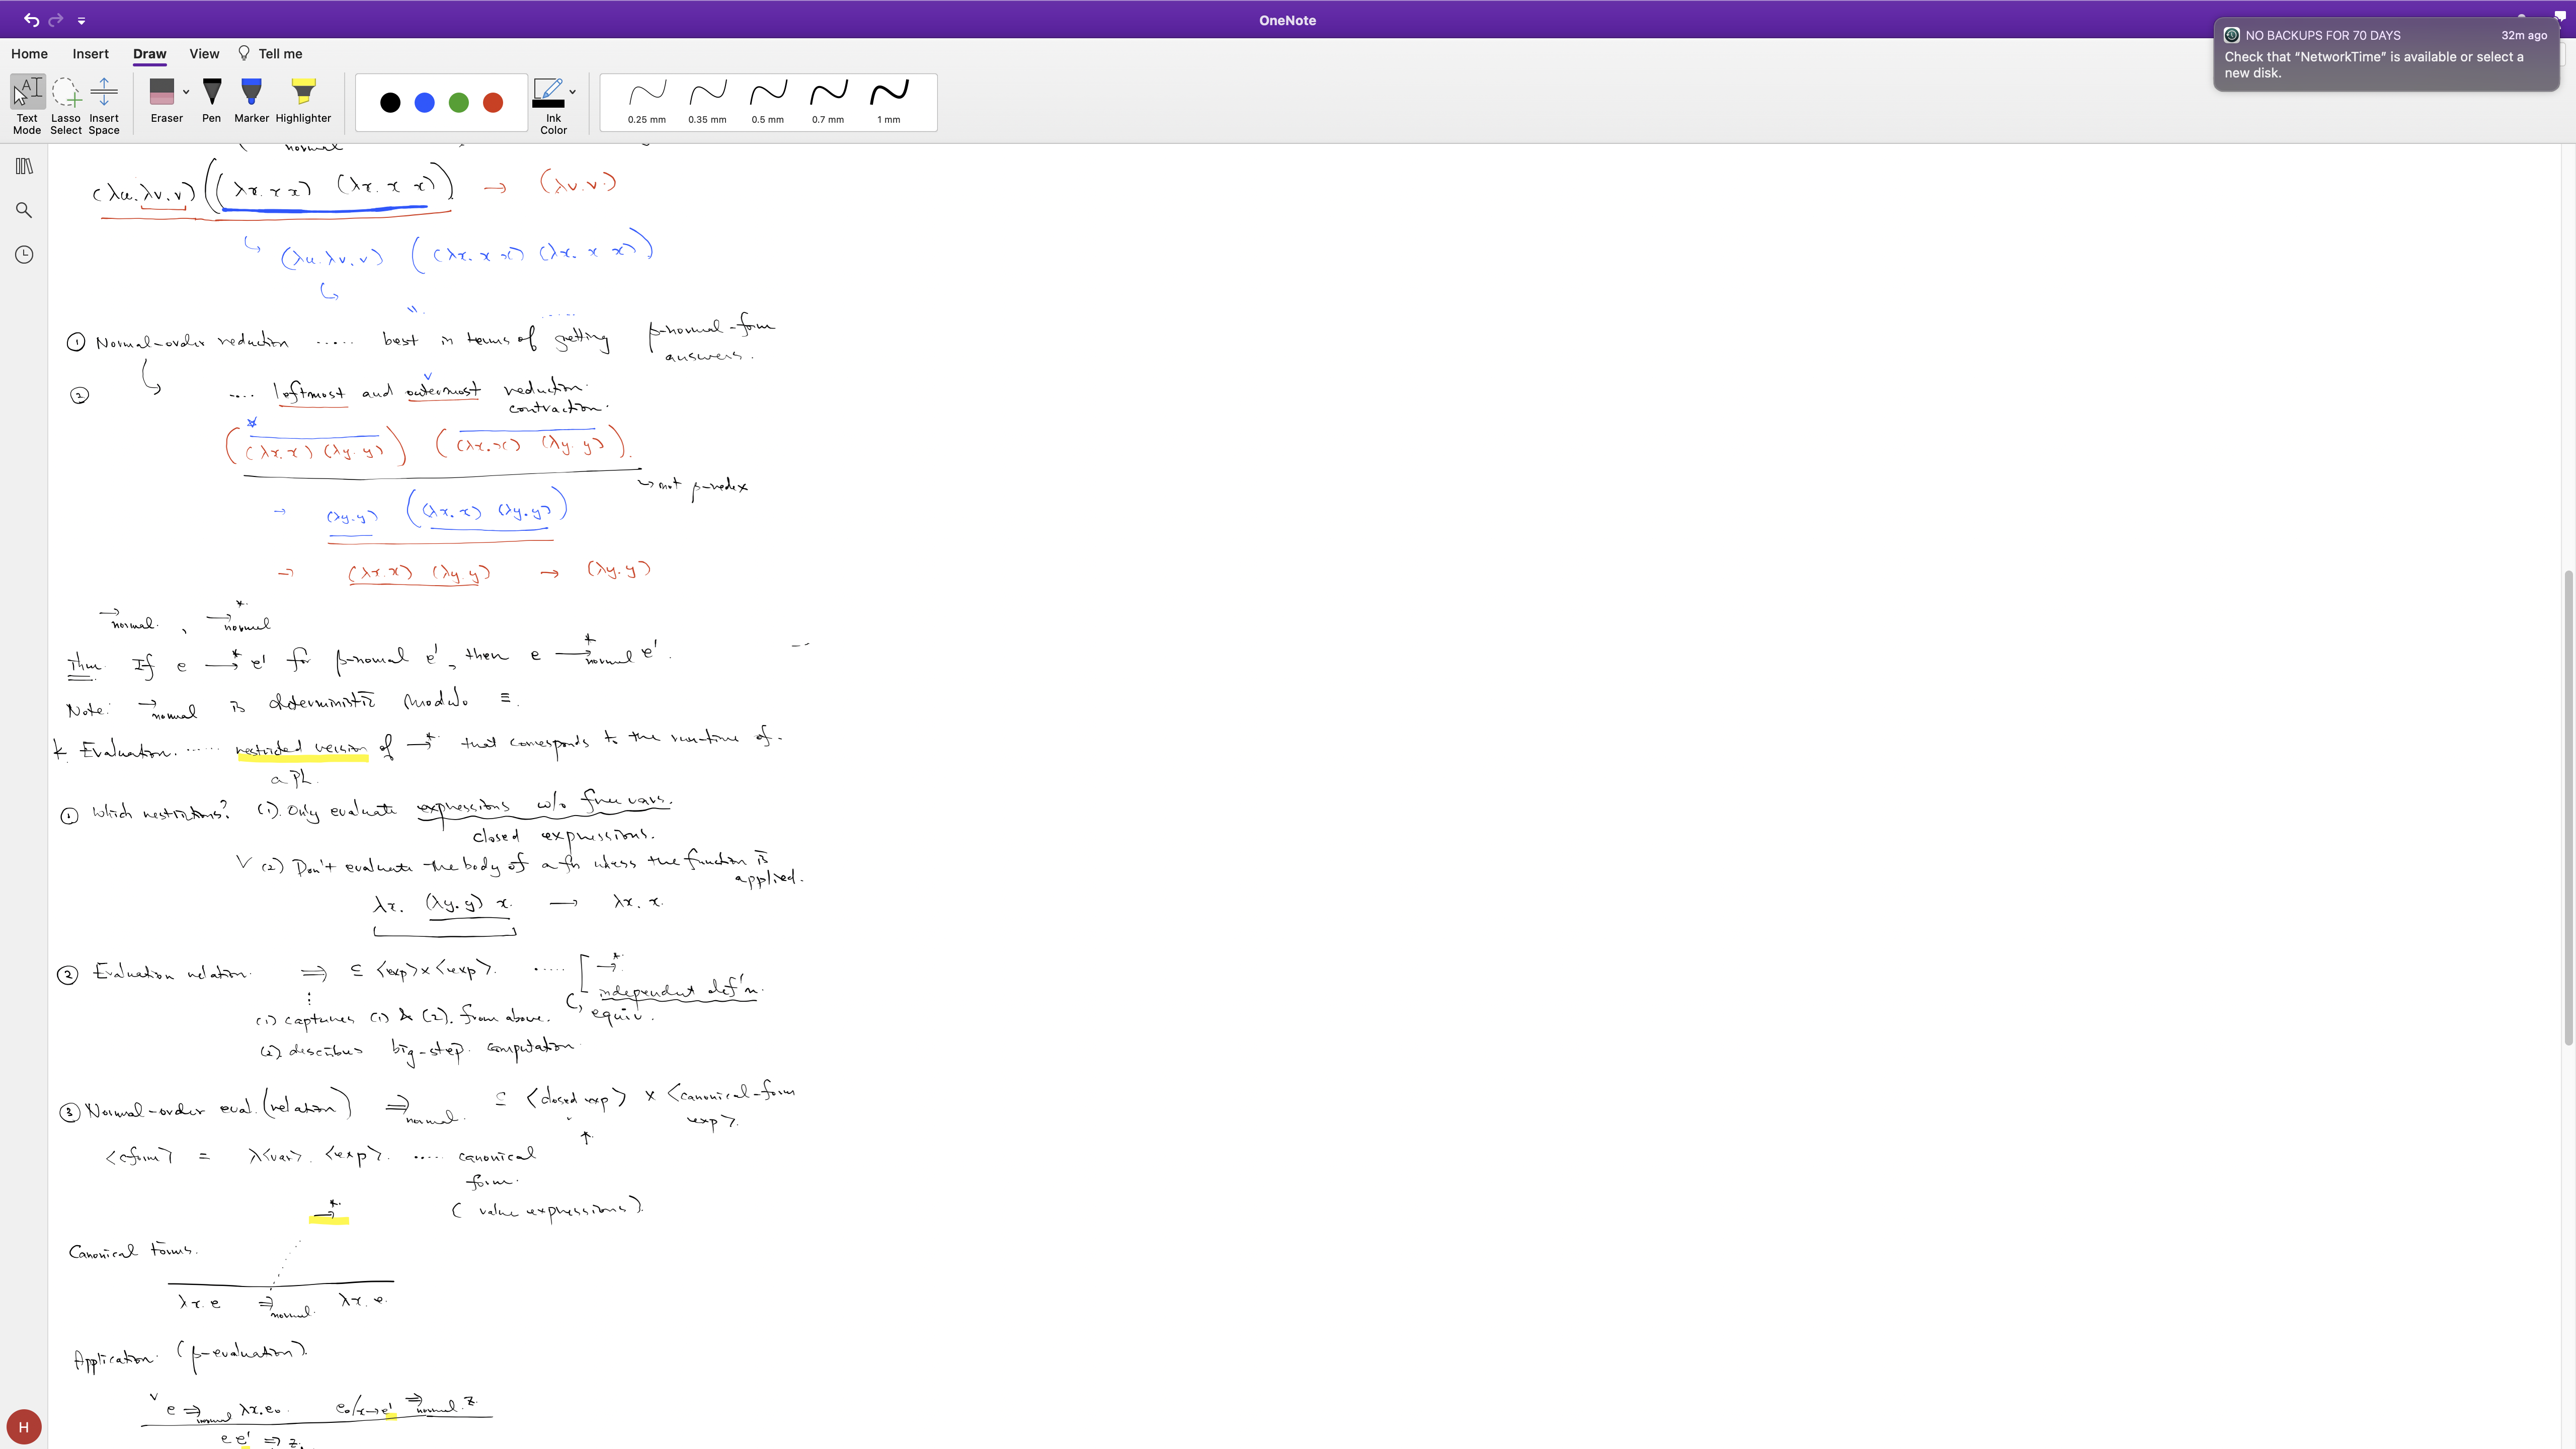 OneNote
NO BACKUPS FOR 70 DAYS 32m ago
Check that “NetworkTime” is available or select a
new disk.
Home Insert Draw View Tell me
Text Mode
Lasso Select
Insert Space
Eraser
Pen
Marker
Highlighter
Ink Color
0.25 mm 0.35 mm 0.5 mm 0.7 mm 1 mm
normal
(λu. λv. v) ((λx. x x) (λx. x x)) → (λv. v.)
↳ (λu. λv. v) ((λx. x x) (λx. x x))
↳ "
① Normal-order reduction ..... best in terms of getting β-normal-form
answers.
② .... leftmost and outermost reduction.
contraction.
((λx. x) (λy. y)) ((λx. x) (λy. y)).
↪ not β-redex
→ (λy. y) ((λx. x) (λy. y))
→ (λx. x) (λy. y) → (λy. y)
→normal. , →*normal
Thm. If e →* e' for β-nomal e', then e →*normal e'.
Note: →normal is deterministic modulo ≡.
Evaluation. ...... restricted version of →* that corresponds to the run-time of.
a PL.
① Which restrictions? (1). Only evaluate expressions w/o free vars.
closed expressions.
∨ (2) Don't evaluate the body of a fn unless the function is
applied.
λx. (λy. y) x. → λx. x.
② Evaluation relation. ⇒ ⊆ <exp>×<exp>. ..... [ →*
independent def'n.
equiv.
(1) captures (1) & (2). from above.
(2) describes big-step. computation.
③ Normal-order eval. (relation) ⇒normal. ⊆ <closed exp> × <canonical-form
exp>.
↑
<cform> = λ<var>. <exp>. .... canonical
form.
(value expressions).
→*
Canonical Forms.
λx. e ⇒normal. λx. e.
Application. (β-evaluation).
∨ e ⇒normal λx. e₀. e₀/x→e' ⇒normal. z.
e e' ⇒ z.
H